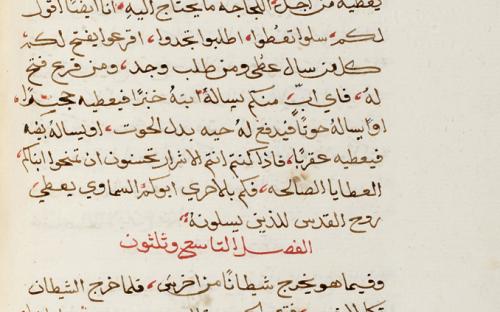 يعطيه من اجل لجاجه ما يحتاج اليه، انا ايضا اقول
لكم، سلوا تعطوا، اطلبوا تجدوا، اقرعوا يفتح لكم
كل من سال عطى ومن طلب وجد، ومن قرع فتح
له، فاي اب منكم يساله ابنه خبزا فيعطيه حجرا،
او يساله حوتا فيدفع له حيه بدل الحوت، او يساله بيضه
فيعطيه عقربا، فاذا كنتم انتم الاشرار تحسنون ان تمنحوا ابناكم
العطايا الصالحه، فكم بلاحري ابوكم السماوي يعطي
روح القدس للذين يسلونه،
الفصل التاسع وثلثون
وفيما هو يخرج شيطانا من اخرس، فلما خرج الشيطان